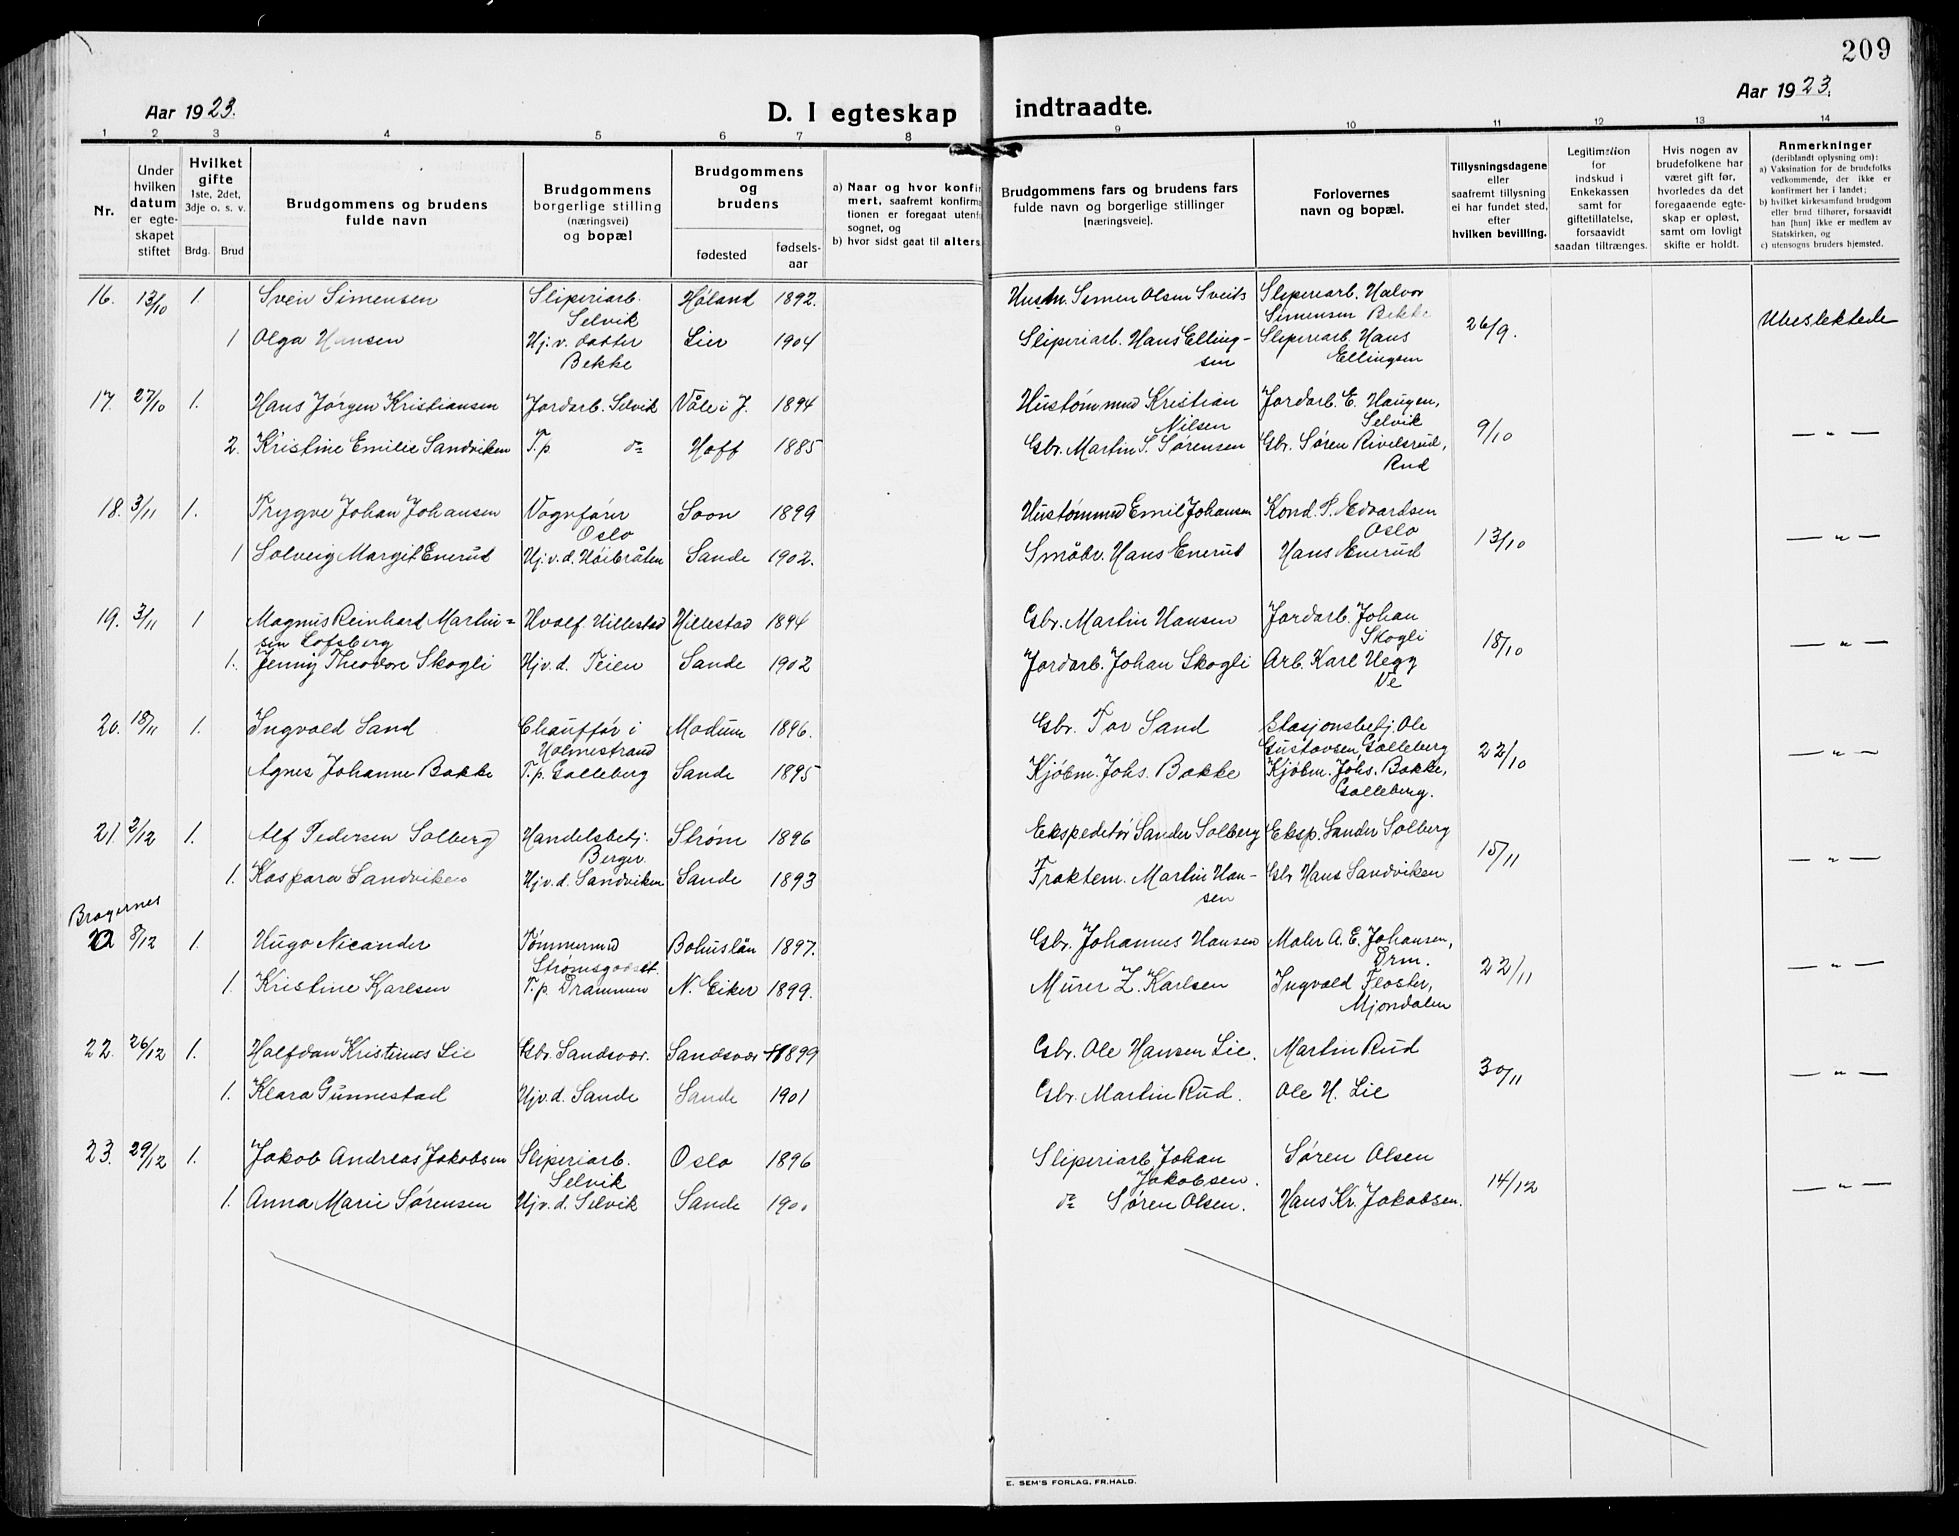 209
Aar 1923.
D. I egteskap indtraadte.
Aar 1923.
1 2 3 4 5 6 7 8 9 10 11 12 13 14
Nr.
Under hvilken datum er egteskapet stiftet
Hvilket gifte 1ste, 2det, 3dje o. s. v.
Brdg. Brud
Brudgommens og brudens fulde navn
Brudgommens borgerlige stilling (næringsvei) og bopæl
Brudgommens og brudens
fødested
fødselsaar
a) Naar og hvor konfir
mert, saafremt konfirma
tionen er foregaat utenfo
sognet, og
b) hvor sidst gaat til alters.
Brudgommens fars og brudens fars fulde navn og borgerlige stillinger [næringsveie].
Forlovernes navn og bopæl.
Tillysningsdagene eller saafremt tillysning ei har fundet sted, efter hvilken bevilling.
Legitimation for indskud i Enkekassen samt for giftetillatelse, forsaavidt saadan tiltrænges.
Hvis nogen av brudefolkene har været gift før, hvorledes da det foregaaende egteskap er opløst, samt om lovligt skifte er holdt.
Anmerkninger
(deriblandt oplysning om):
a) Vaksination for de brudefolks vedkommende, der ikke er konfirmert her i landet;
b) hvilket kirkesamfund brudgom eller brud tilhører, forsaavidt han [hun] ikke er medlem av Statskirken, og
c) utensogns bruders hjemsted.
16. 13/10 1. Svein Simensen Sliperiarb. Selvik Høland 1892. Husm. Simen Olsen Sveits Sliperiarb. Halvor Simensen Bekke 26/9. Ubeslektede
1 Olga Hansen Hj. v. datter Bekke Lier 1904 Sliperiarb. Hans Ellingsen Sliperiarb. Hans Ellingsen
17. 27/10 1. Hans Jørgen Kristiansen Jordarb. Selvik Våle i J. 1894 Hustømmmd Kristian Nilsen Jordarb. E. Haugen, Selvik 9/10 — " —
2. Kristine Emilie Sandviken T.p do Hoff 1885 Gbr. Martin S. Sørensen Gbr. Søren Rivelsrud, Rud
18. 3/11 1. Trygve Johan Johansen Vognfører Oslo Soon 1899 Hustømmd Emil Johansen Kond. P. Edvardsen Oslo 13/10 — " —
1 Solveig Margit Enerud Hj. v. d. Høibråten Sande 1902. Småbr. Hans Enerud Hans Enerud
19. 3/11 1 Magnus Reinhard Martinsen Lofsberg Hvalf. Hillestad Hillestad 1894 Gbr. Martin Hansen Jordarb. Johan Skogli 18/10 — " —
1. Jenny Theodore Skogli Hjv. d. Teien Sande 1902 Jordarb. Johan Skogli Arb. Karl Hegg Ve
20. 18/11 1. Ingvald Sand Chauffør i Holmestrand Modum 1896. Gbr. Tor Sand Stasjonsbetj. Ole Gustavsen Galleberg 22/10 — " —
Agnes Johanne Bakke T.p. Galleberg Sande 1895 Kjøbm. Johs. Bakke Kjøbm. Johs. Bakke, Galleberg.
21. 2/12 1. Alf Pedersen Solberg Handelsbetj. Berger Strøm 1896 Ekspeditør Sander Solberg Eksp. Sander Solberg 15/11 — " —
1. Kaspara Sandviken Hjv. d. Sandviken Sande 1893 Fraktem. Martin Hansen Gbr Hans Sandviken
Bragernes
8/12 1. Hugo Nicander Tømmermd Strømsgodset. Bohuslån 1897. Gbr. Johannes Hansen Maler A. E. Johansen, Drm. 22/11 — " —
1. Kristine Karlsen T.p. Drammen N. Eiker 1899. Murer Z. Karlsen Ingvald Floster, Mjøndalen
22. 26/12 1. Halfdan Kristines Lie Gbr. Sandsvær. Sandsvær 1899 Gbr. Ole Hansen Lie. Martin Rud 30/11 — " —
1. Klara Gunnestad Hjv. d. Sande Sande 1901 Gbr. Martin Rud. Ole H. Lie
23. 29/12 1. Jakob Andreas Jakobsen Sliperiarb. Selvik Oslo 1896 Sliperiarb Johan Jakobsen. Søren Olsen 14/12 — " —
1. Anna Marie Sørensen Hjv. d. Selvik Sande 1900 do Søren Olsen. Hans Kr. Jakobsen.
E. SEM'S FORLAG, FR.HALD.